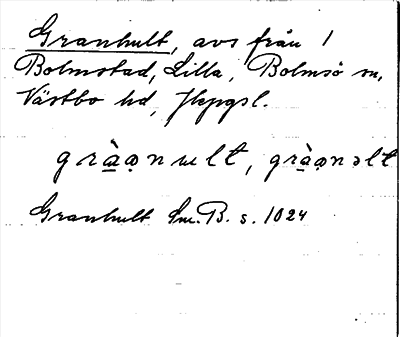 Granhult, avs från 1
Bolmstad, Lilla, Bolmsö sn,
Västbo hd, Jkpgsl.
gràa̠o̠nult, gràa̠o̠nəlt
Granhult Sm.B. s. 1024